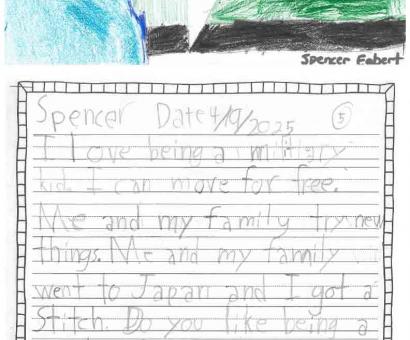 Spencer Eabert
Spencer Date 4/19/2025 5
I love being a military
kid. I can move for free.
Me and my family try new
things. Me and my family
went to Japan and I got a
Stitch. Do you like being a